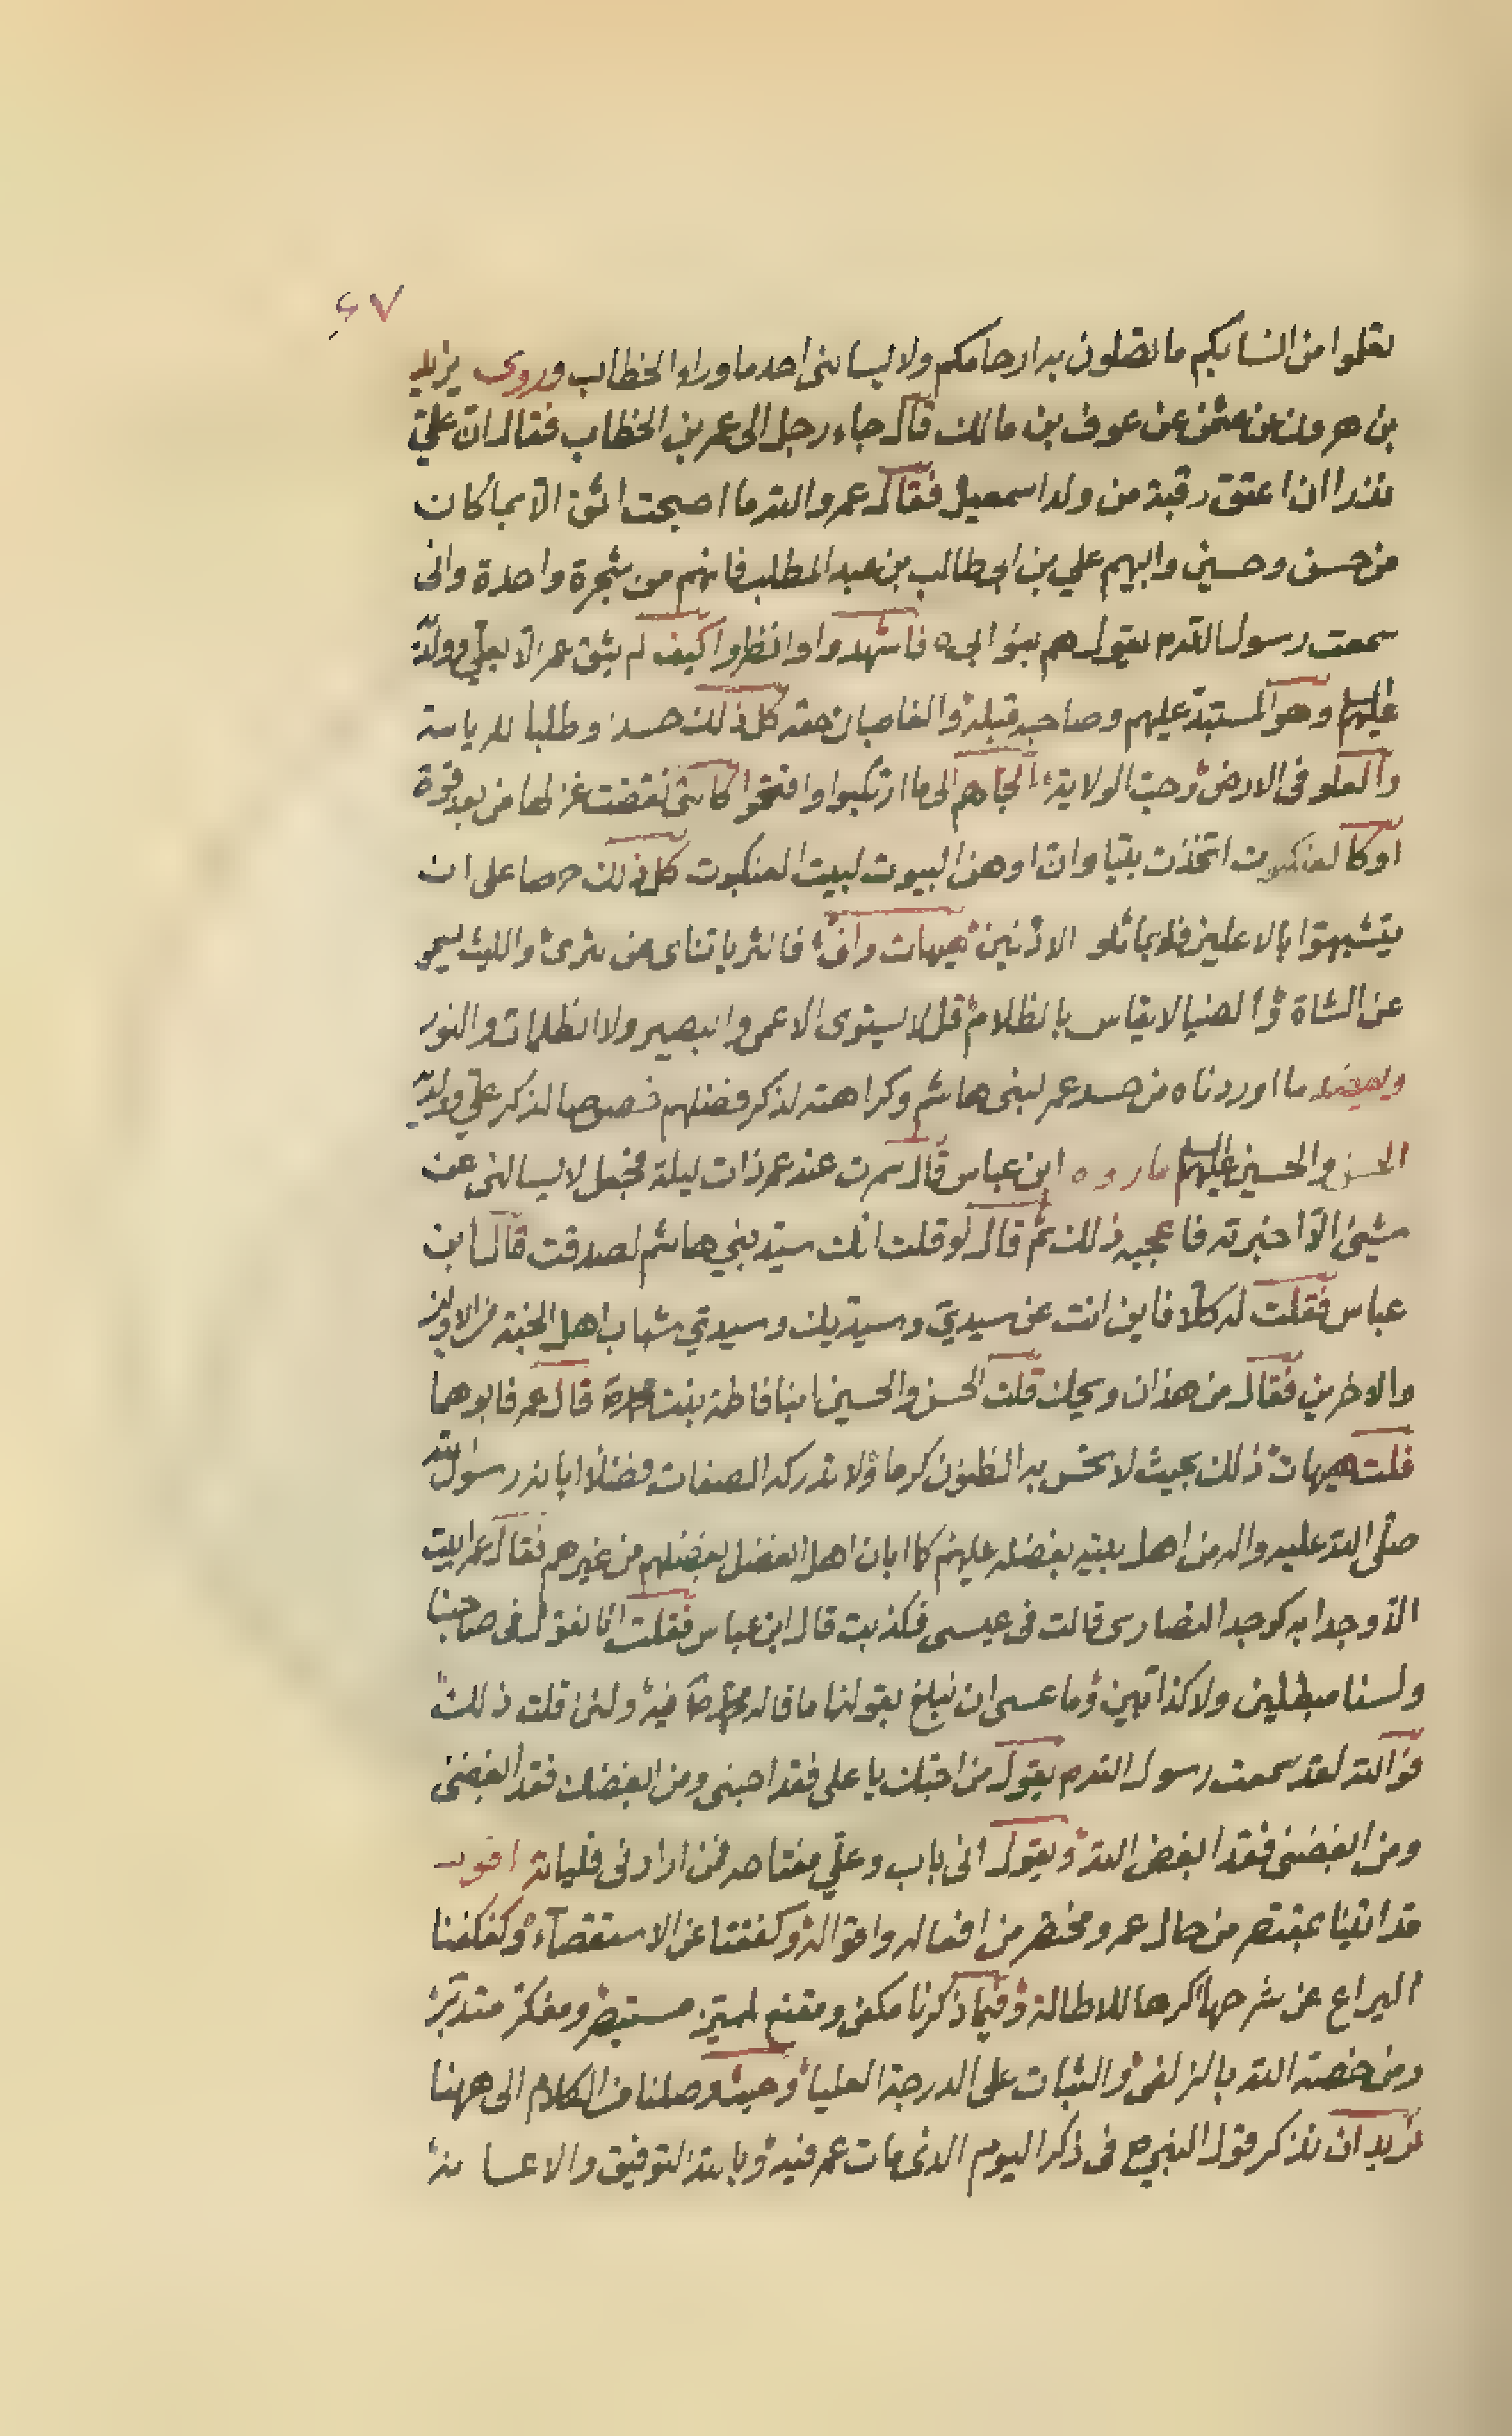 ٤٧
تعلموا من انسابكم ما تصلون به ارحامكم ولا يسالنى احد ما وراء الخطاب وروى يزيد
بن هرون عن عثمن عن عوف بن مالك قال جاء رجل الى عمر بن الخطاب فقال ان علىّ
نذرا ان اعتق رقبة من ولد اسمعيل فقال عمر والله ما اصبحت اثق الّا بما كان
من حسن وحسين وابيهم علي بن ابى طالب بن عبد المطلب فانهم من شجرة واحدة وانى
سمعت رسول الله ص يقول هم بنو ابى ه فاشهدوا وانظروا كيف لم يثق عمر الّا بعلي وولده
عليهم وهو المستبدّ عليهم وصاحبه قبله والغاصبان حقه كل ذلك حسدا وطلبا للرياسة
والعلو فى الارض وحب الولاية الجاهم الى ما ارتكبوا وافتحوا كالتى نقضت غزلها من بعد قوة
او كالعنكبوت اتخذت بيتا وان اوهن البيوت لبيت العنكبوت كل ذلك حرصا على ان
يتشبهوا بالاعلين فلو يماثلوا الادنين هيهات وانّ فالثريا تناى عن ثرى والليث يسمو
عن الشاة والضيا لا يقاس بالظلام قل لا يستوى الاعمى والبصير ولا الظلمات والنور
ويعضد ما اوردناه من حسد عمر لبنى هاشم وكراهته لذكر فضلهم خصوصا لذكر علي وولديه
الحسن والحسين عليهم ما رواه ابن عباس قال سمرت عند عمر ذات ليلة فجعل لا يسالنى عن
شيئ الّا اخبرته فاعجبه ذلك ثم قال لو قلت انك سيّد بني هاشم لصدقت قال ابن
عباس فقلت له كلّا فاين انت عن سيدىّ وسيديك وسيدي شباب اهل الجنة من الاولين
والاخرين فقال من هذان ويحك قلت الحسن والحسين ابنا فاطمة بنت محمد ص قال عمر فابوهما
قلت هيهات ذلك بحيث لا تحسّ به الظنون كرما ولا تدركه الصفات فضلا ابانه رسول الله
صلّى الله عليه واله من اهل بيته بفضله عليهم كما ابان اهل الفضل بفضلهم من غيرهم فقال عمر ابيت
الّا وجدا به كوجد النصارى قالت فى عيسى فكذبت قال ابن عباس فقلت انا لنقول فى صاحبنا
ولسنا مبطلين ولا كذابين وما عسى ان نبلغ بقولنا ما قاله محمد ص فيه ولئن قلت ذلك
فوالله لقد سمعت رسول الله ص يقول من احبك يا على فقد احبنى ومن ابغضك فقد ابغضنى
ومن ابغضنى فقد ابغض الله ويقول انى باب وعلي مفتاحه فمن ارادنى فلياته اقول
قد اتينا بمقتصر من حال عمر ومختصر من افعاله واقواله وكففنا عن الاستقصآء وكفكفنا
اليراع عن شرحها كرها للاطالة وفيما ذكرنا مكفى ومقنع لمميّز مستبصر ومفكر متدبّر
ومن خصه الله بالزلفى والثبات على الدرجة العليا وحيث وصلنا من الكلام الى ههنا
نريد ان نذكر قول النبي ص فى ذكر اليوم الذى مات عمر فيه وبالله التوفيق والاعسانه